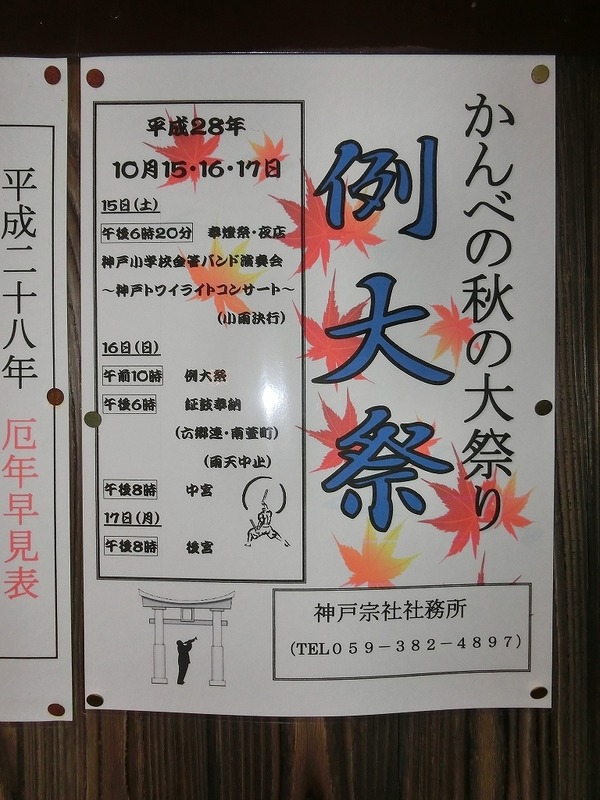 かんべの秋の大祭り
例大祭
平成28年
10月15・16・17日
15日(土)
午後6時20分 奉燈祭・夜店
神戸小学校金管バンド演奏会
～神戸トワイライトコンサート～
(小雨決行)
16日(日)
午前10時 例大祭
午後6時 鉦鼓奉納
(六郷連・南萱町)
(雨天中止)
午後8時 中宮
17日(月)
午後8時 後宮
神戸宗社社務所
(TEL059－382－4897)
平成二十八年
厄年早見表